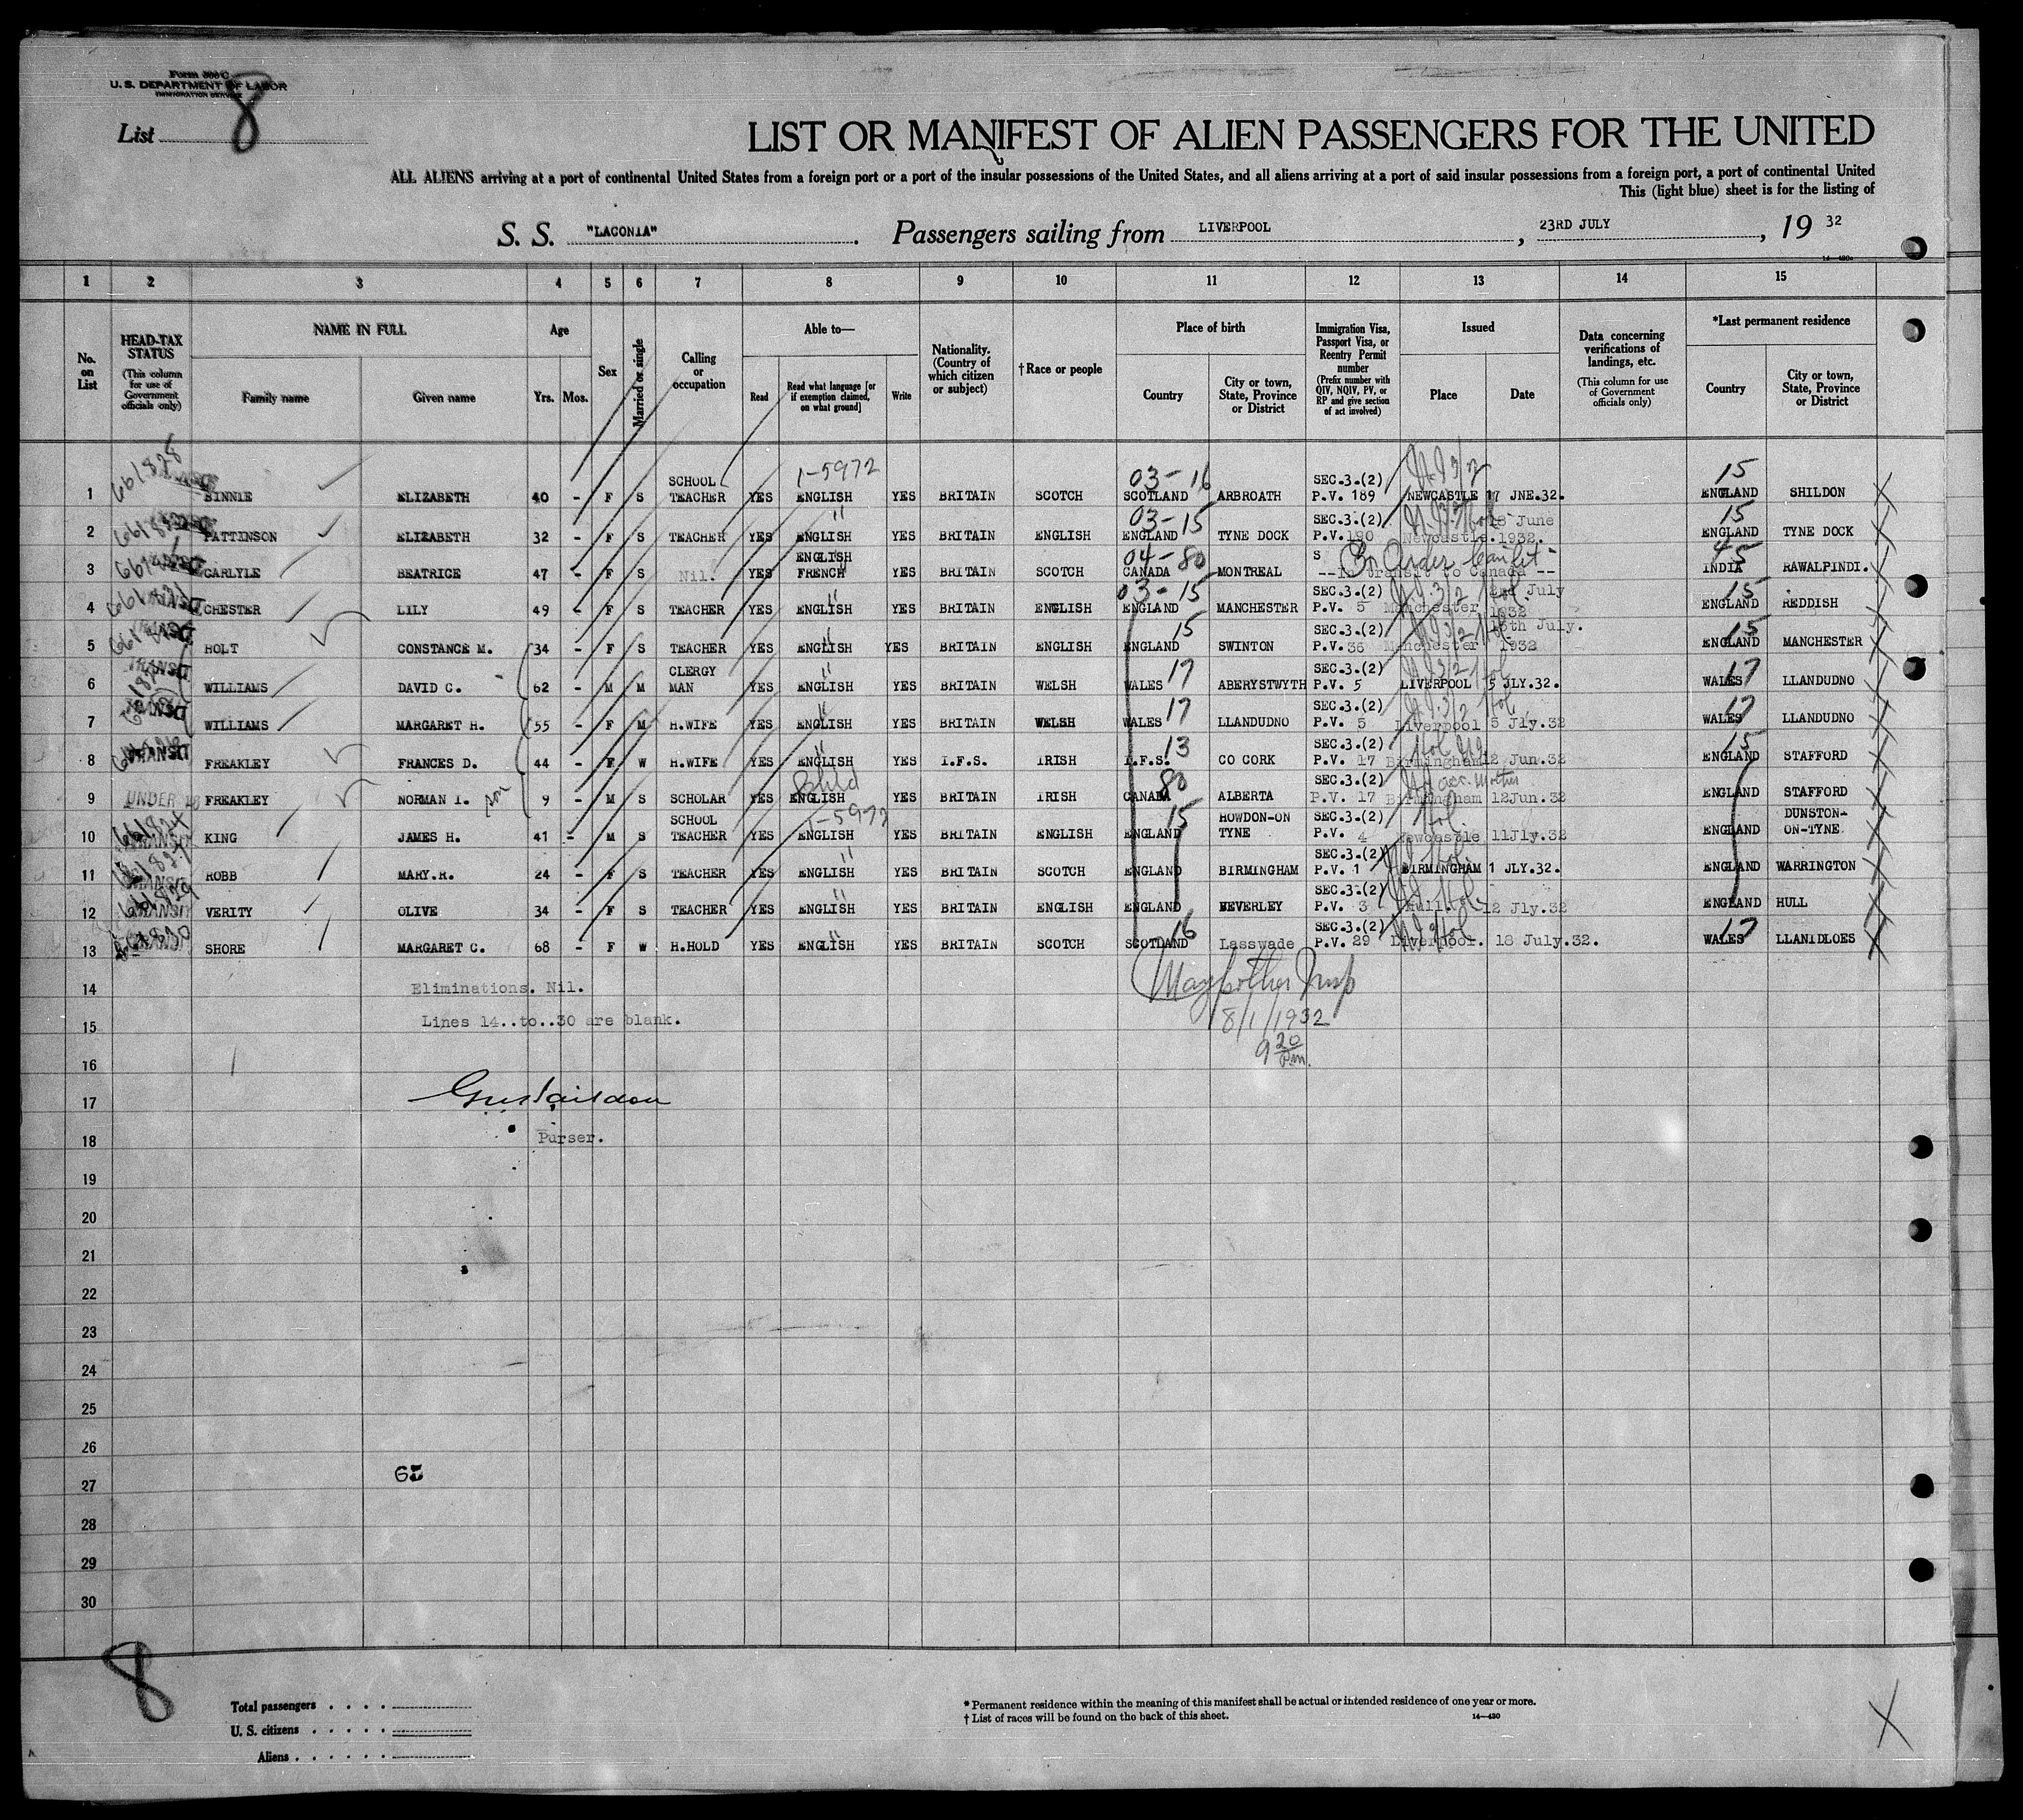 Form 500 C
U. S. DEPARTMENT OF LABOR
IMMIGRATION SERVICE
List 8
LIST OR MANIFEST OF ALIEN PASSENGERS FOR THE UNITED
ALL ALIENS arriving at a port of continental United States from a foreign port or a port of the insular possessions of the United States, and all aliens arriving at a port of said insular possessions from a foreign port, a port of continental United
This (light blue) sheet is for the listing of
S. S. "LACONIA". Passengers sailing from LIVERPOOL, 23RD JULY, 19 32
1 2 3 4 5 6 7 8 9 10 11 12 13 14 15
No. on List
HEAD-TAX STATUS (This column for use of Government officials only)
NAME IN FULL Family name Given name
Age Yrs. Mos.
Sex
Married or single
Calling or occupation
Able to— Read Read what language [or if exemption claimed, on what ground] Write
Nationality. (Country of which citizen or subject)
†Race or people
Place of birth Country City or town, State, Province or District
Immigration Visa, Passport Visa, or Reentry Permit number (Prefix number with QIV, NQIV, PV, or RP and give section of act involved)
Issued Place Date
Data concerning verifications of landings, etc. (This column for use of Government officials only)
*Last permanent residence Country City or town, State, Province or District
1 BINNIE ELIZABETH 40 - F S SCHOOL TEACHER YES 1-5972 ENGLISH YES BRITAIN SCOTCH 03-16 SCOTLAND ARBROATH SEC.3.(2) P.V. 189 NEWCASTLE 17 JNE.32. 15 ENGLAND SHILDON
2 PATTINSON ELIZABETH 32 - F S TEACHER YES ENGLISH YES BRITAIN ENGLISH 03-15 ENGLAND TYNE DOCK SEC.3.(2) P.V. 190 Newcastle. June 1932. 15 ENGLAND TYNE DOCK
3 CARLYLE BEATRICE 47 - F S Nil. YES ENGLISH FRENCH YES BRITAIN SCOTCH 04-80 CANADA MONTREAL transit to Canada -- 45 INDIA RAWALPINDI.
4 CHESTER LILY 49 - F S TEACHER YES ENGLISH YES BRITAIN ENGLISH 03-15 ENGLAND MANCHESTER SEC.3.(2) P.V. 5 Manchester 2nd July 1932 15 ENGLAND REDDISH
5 HOLT CONSTANCE M. 34 - F S TEACHER YES ENGLISH YES BRITAIN ENGLISH 15 ENGLAND SWINTON SEC.3.(2) P.V. 36 Manchester July. 1932 15 ENGLAND MANCHESTER
6 TRANSIT WILLIAMS DAVID C. 62 - M M CLERGY MAN YES ENGLISH YES BRITAIN WELSH 17 WALES ABERYSTWYTH SEC.3.(2) P.V. 5 LIVERPOOL 5 JLY.32. 17 WALES LLANDUDNO
7 WILLIAMS MARGARET H. 55 - F M H.WIFE YES ENGLISH YES BRITAIN WELSH 17 WALES LLANDUDNO SEC.3.(2) P.V. 5 Liverpool 5 Jly.32 17 WALES LLANDUDNO
8 TRANSIT FREAKLEY FRANCES D. 44 - F W H.WIFE YES ENGLISH YES I.F.S. IRISH 13 I.F.S. CO CORK SEC.3.(2) P.V. 17 Birmingham 12 Jun.32 15 ENGLAND STAFFORD
9 UNDER 16 FREAKLEY NORMAN I. son 9 - M S SCHOLAR YES Child ENGLISH YES BRITAIN IRISH 80 CANADA ALBERTA SEC.3.(2) P.V. 17 acc. Mother Birmingham 12Jun.32 ENGLAND STAFFORD
10 KING JAMES H. 41 - M S SCHOOL TEACHER YES 1-5972 ENGLISH YES BRITAIN ENGLISH 15 ENGLAND HOWDON-ON TYNE SEC.3.(2) P.V. 4 Newcastle 11Jly.32 ENGLAND DUNSTON-ON-TYNE.
11 ROBB MARY.R. 24 - F S TEACHER YES ENGLISH YES BRITAIN SCOTCH ENGLAND BIRMINGHAM SEC.3.(2) P.V. 1 BIRMINGHAM 1 JLY.32. ENGLAND WARRINGTON
12 VERITY OLIVE 34 - F S TEACHER YES ENGLISH YES BRITAIN ENGLISH ENGLAND BEVERLEY SEC.3.(2) P.V. 3 Hull. 12 Jly.32 ENGLAND HULL
13 SHORE MARGARET C. 68 - F W H.HOLD YES ENGLISH YES BRITAIN SCOTCH 16 SCOTLAND Lasswade SEC.3.(2) P.V. 29 Liverpool. 18 July.32. 17 WALES LLANIDLOES
14 Eliminations. Nil.
15 Lines 14..to..30 are blank.
8/1/1932
16 9 20
17
18 Purser.
19
20
21
22
23
24
25
26
27
28
29
30
8
Total passengers
U. S. citizens
Aliens
* Permanent residence within the meaning of this manifest shall be actual or intended residence of one year or more.
† List of races will be found on the back of this sheet.
14—430